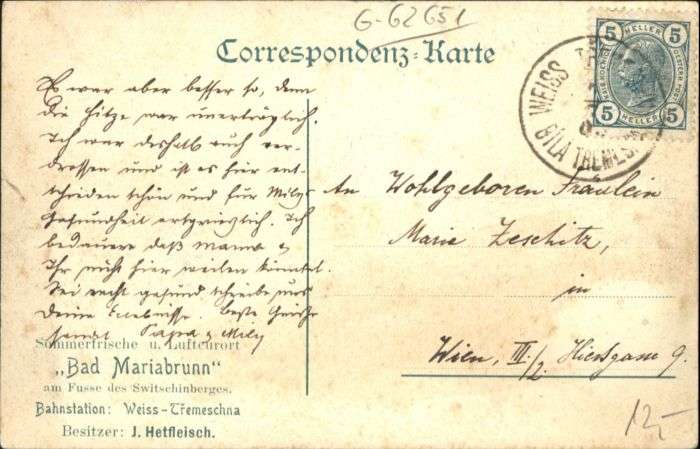 G-62651
Correspondenz-Karte
5 HELLER 5
5 HELLER 5
WEISS TŘEMEŠ
BÍLA TŘEMEŠ
Es war aber besser so, denn
die Hitze war unerträglich.
Ich war deshalb auch ver-
drossen und ist es hier ent-
schieden schön und für Milys
Gesundheit ersprießlich. Ich
bedauere daß Mama &
Ihr nicht hier weilen könntet.
Sei recht gesund schreibe uns
Deine Erlebnisse. Beste Grüße
Papa & Mily
An Wohlgeboren Fräulein
Marie Zeschitz,
in
Wien, III/2. Hiessgasse 9.
Sommerfrische u. Luftcurort
„Bad Mariabrunn"
am Fusse des Switschinberges.
Bahnstation: Weiss-Třemeschna
Besitzer: J. Hetfleisch.
12,-